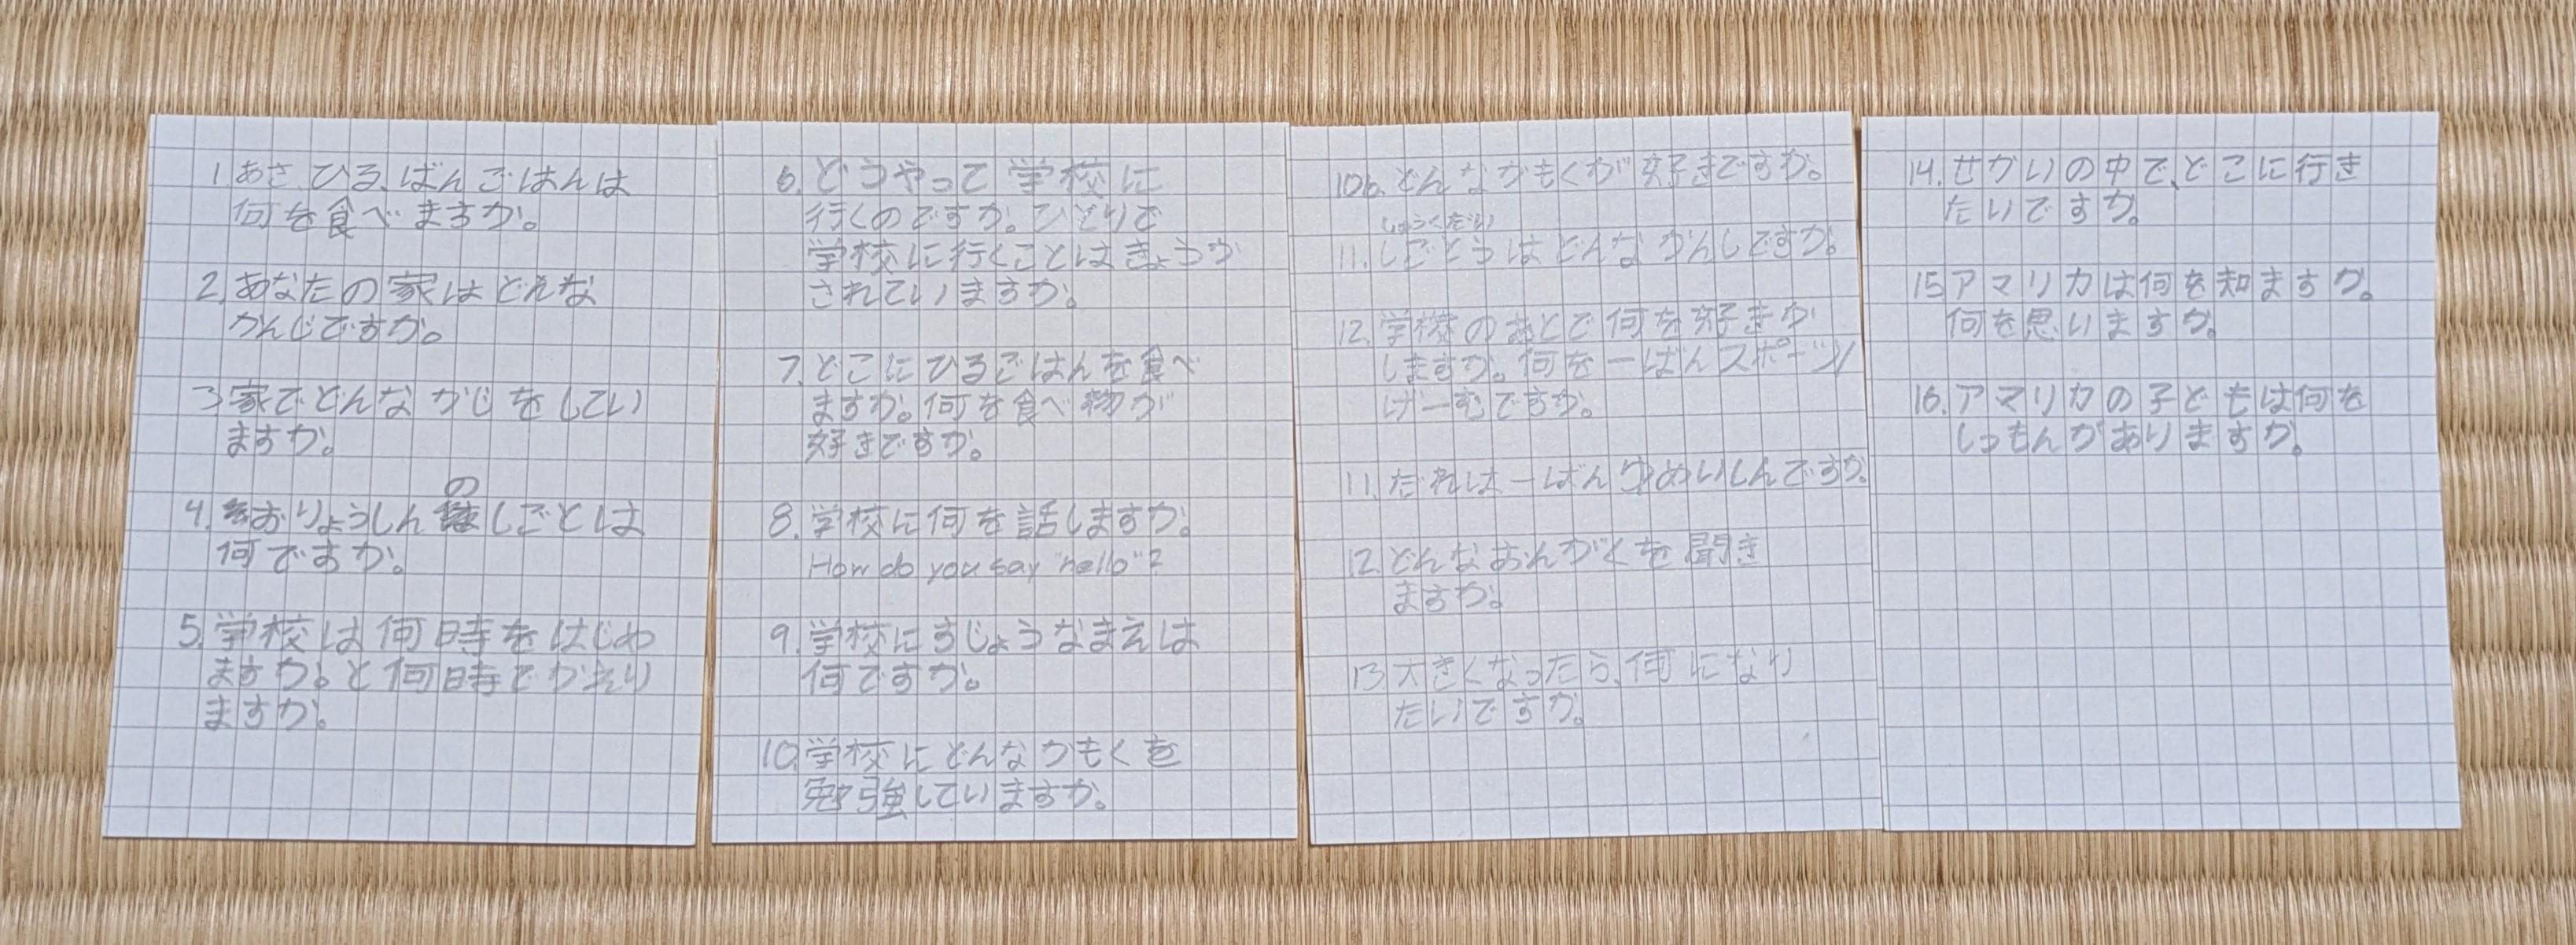 1. あさ、ひる、ばんごはんは
何を食べますか。
2. あなたの家はどんな
かんじですか。
3 家でどんなかじをしてい
ますか。
の
4. おりょうしんしごとは
何ですか。
5. 学校は何時をはじめ
ますか。と何時でかえり
ますか。
6. どうやって学校に
行くのですか。ひとりで
学校に行くことはきょうか
されていますか。
7. どこにひるごはんを食べ
ますか。何を食べ物が
好きですか。
8. 学校に何を話しますか。
How do you say "hello"?
9. 学校にすじょうなまえは
何ですか。
10. 学校にどんなかもくを
勉強していますか。
10b. どんなかもくが好きですか。
しゅくだい
11. はどんなかんじですか。
12. 学校のあとで何を好きか
しますか。何を一ばんスポーツ/
げーむですか。
11. だれは一ばんゆめいじんですか。
12. どんなおんがくを聞き
ますか。
13 大きくなったら、何になり
たいですか。
14. せかいの中で、どこに行き
たいですか。
15 アマリカは何を知ますか。
何を思いますか。
16. アマリカの子どもは何を
しつもんがありますか。